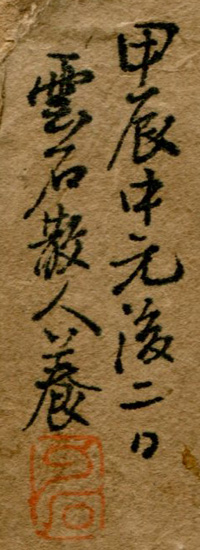 甲辰中元後二日
雲石散人養